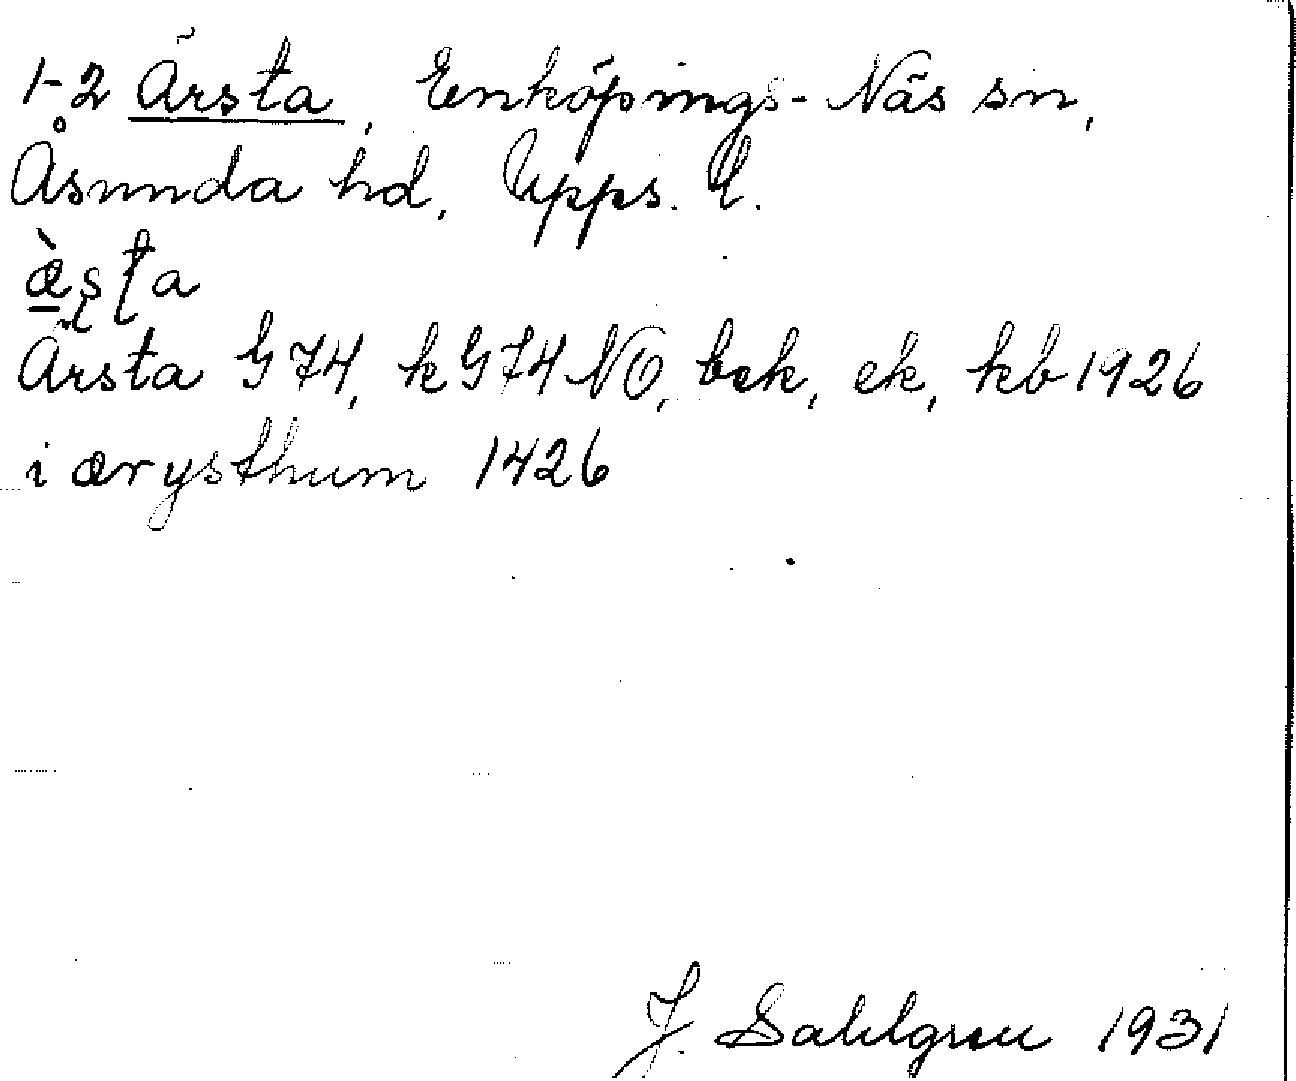 1-2 Ärsta, Enköpings-Näs sn,
Åsunda hd, Upps. l.
æ̀sta
Ärsta G74, kG74NO, bek, ek, kb1926
i ærysthum 1426
J. Sahlgren 1931